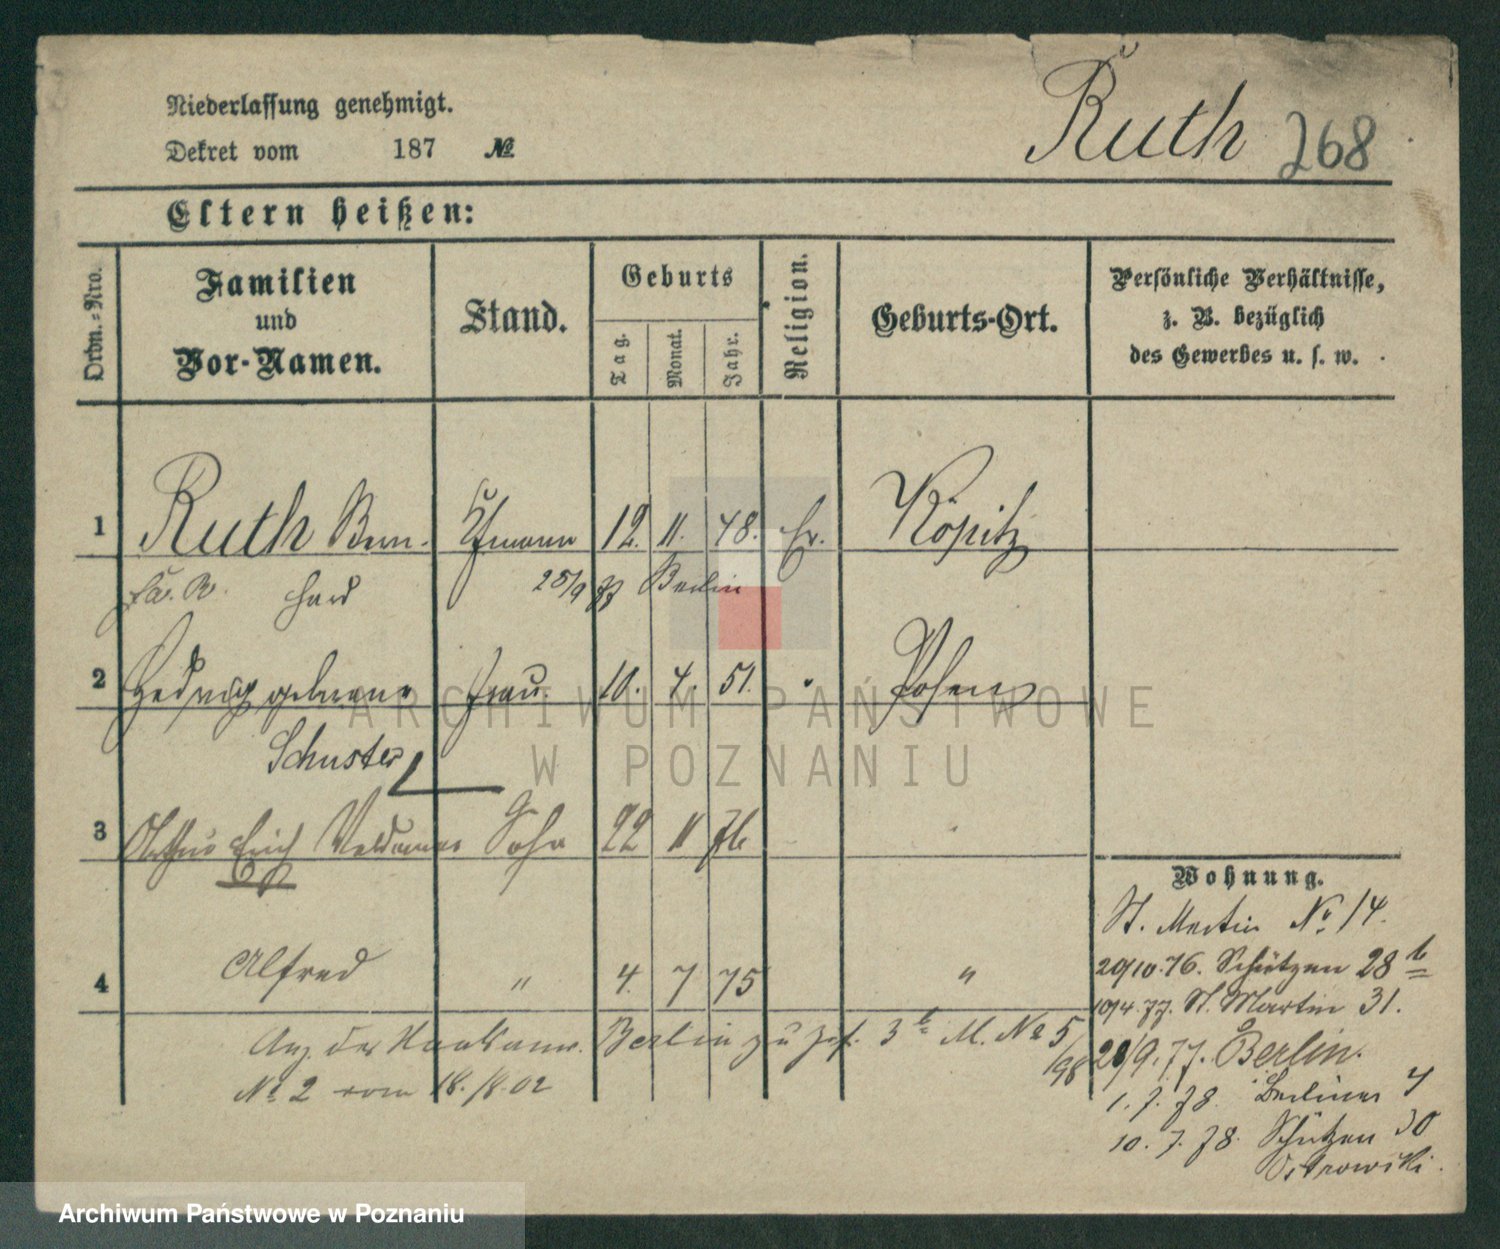 Niederlassung genehmigt.
Ruth 268
Dekret vom 187 №
Eltern heißen:
Ordn.-Nro.
Familien und Vor-Namen.
Stand.
Geburts
Tag.
Monat.
Jahr.
Religion.
Geburts-Ort.
Persönliche Verhältnisse, z. B. bezüglich des Gewerbes u. s. w.
1 Ruth Bern- Kfmann 12. 11. 48. Ev. Köpitz
hard 25/9 77 Berlin
2 Hedwig geborene Frau 10. 4. 51. Posen
Schuster
3 Arthur Erich Waldemar Sohn 22 11 76
4 Alfred " 4. 7 75 "
Berlin zu 3 b M. No 5/98
No 2 vom 18./8.02
Wohnung.
St. Martin No 14.
20/10.76. Schützen 28 b
10/4.77. St. Martin 31.
28/9.77. Berlin.
1.7.78. Berliner 4
10.7.78. Schützen 30
Ostrowski.
ARCHIWUM PAŃSTWOWE
W POZNANIU
Archiwum Państwowe w Poznaniu